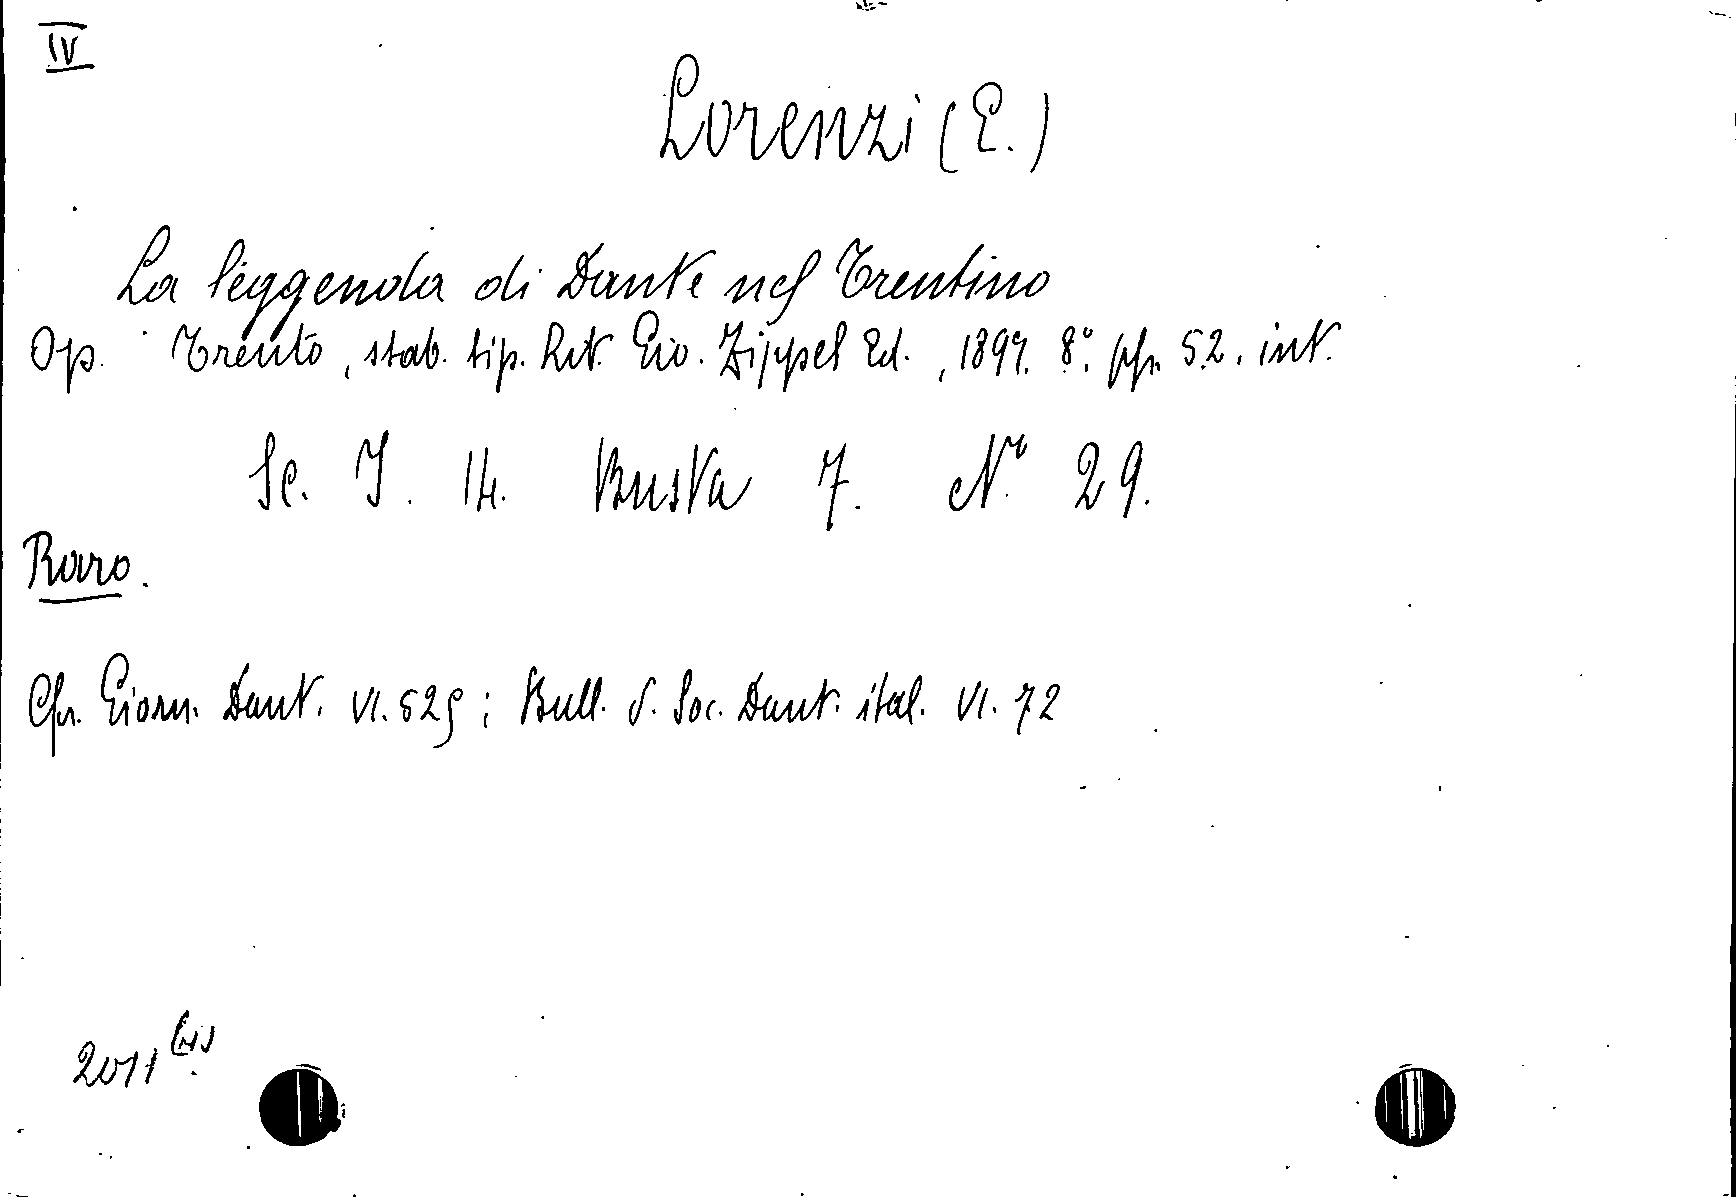 IV
Lorenzi (E.)
La leggenda di Dante nel Trentino
Op. Trento, stab. tip. lit. Gio. Zippel Ed., 1897. 8°. pp. 52. int.
Sc. I. 14. Busta 7. N° 29.
Raro.
Cfr. Giorn. Dant. VI. 529; Bull. d. Soc. Dant. ital. VI. 72
2011